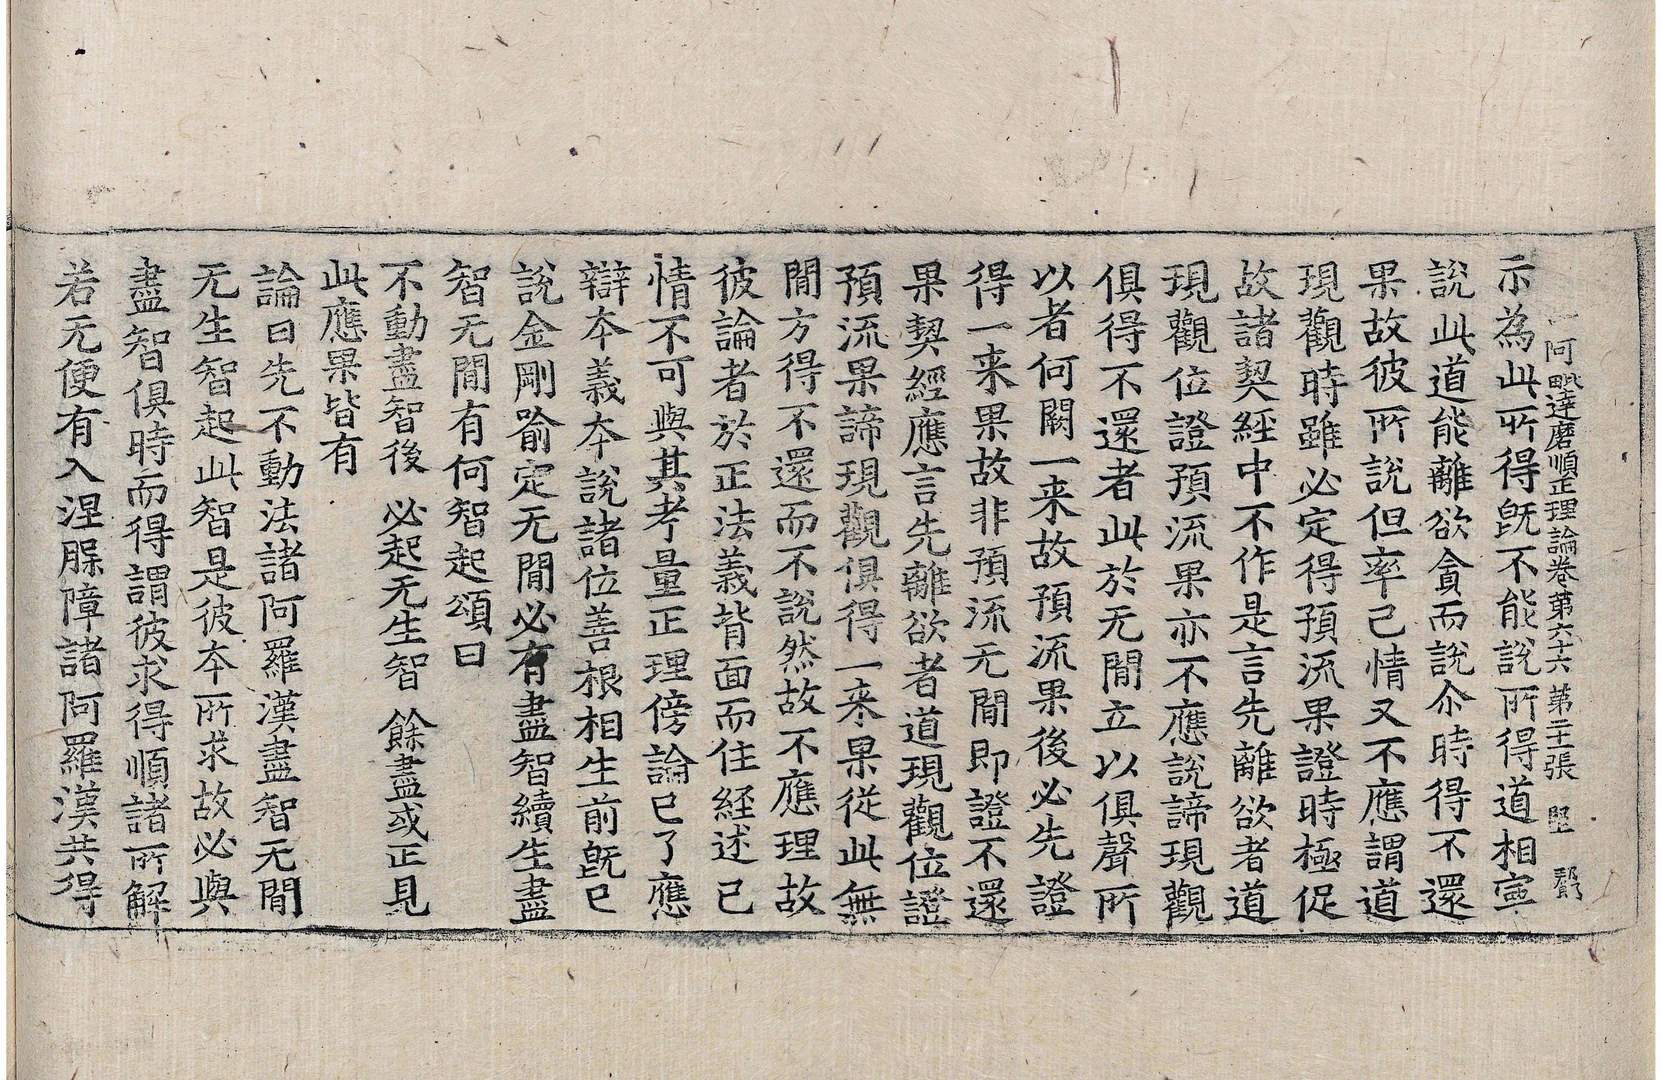 阿毗達磨順正理論卷第六十六 第二十張 堅
示為此所得旣不能說所得道相寧
說此道能離欲貪而說尒時得不還
果故彼所說但率己情又不應謂道
現觀時雖必定得預流果證時極促
故諸契經中不作是言先離欲者道
現觀位證預流果亦不應說諦現觀
俱得不還者此於无閒立以俱聲所
以者何闕一来故預流果後必先證
得一来果故非預流无閒即證不還
果契經應言先離欲者道現觀位證
預流果諦現觀俱得一来果從此無
閒方得不還而不說然故不應理故
彼論者於正法義背面而住経述己
情不可與其考量正理傍論已了應
辯本義本說諸位善根相生前旣已
說金剛喻定无閒必有盡智續生盡
智无閒有何智起頌曰
不動盡智後 必起无生智 餘盡或正見
此應果皆有
論曰先不動法諸阿羅漢盡智无閒
无生智起此智是彼本所求故必與
盡智俱時而得謂彼求得順諸所解
若无便有入涅脲障諸阿羅漢共得